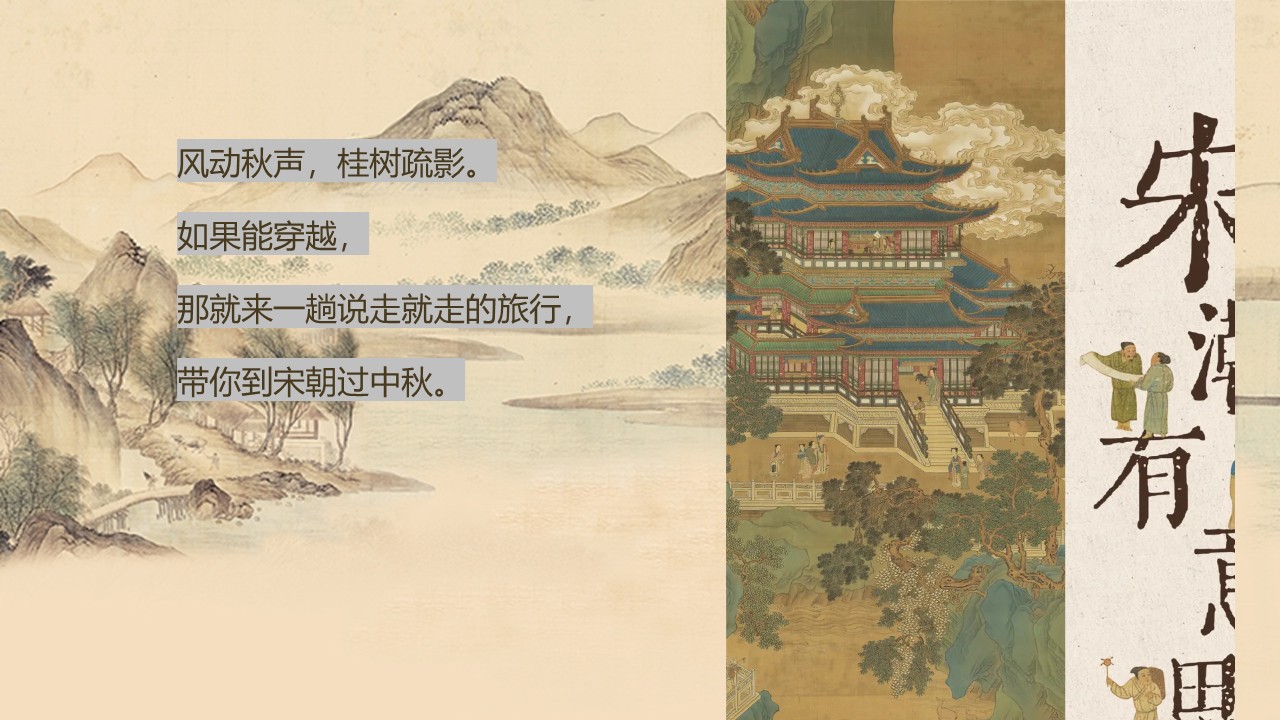 风动秋声，桂树疏影。
如果能穿越，
那就来一趟说走就走的旅行，
带你到宋朝过中秋。
宋
潮
有
意
思